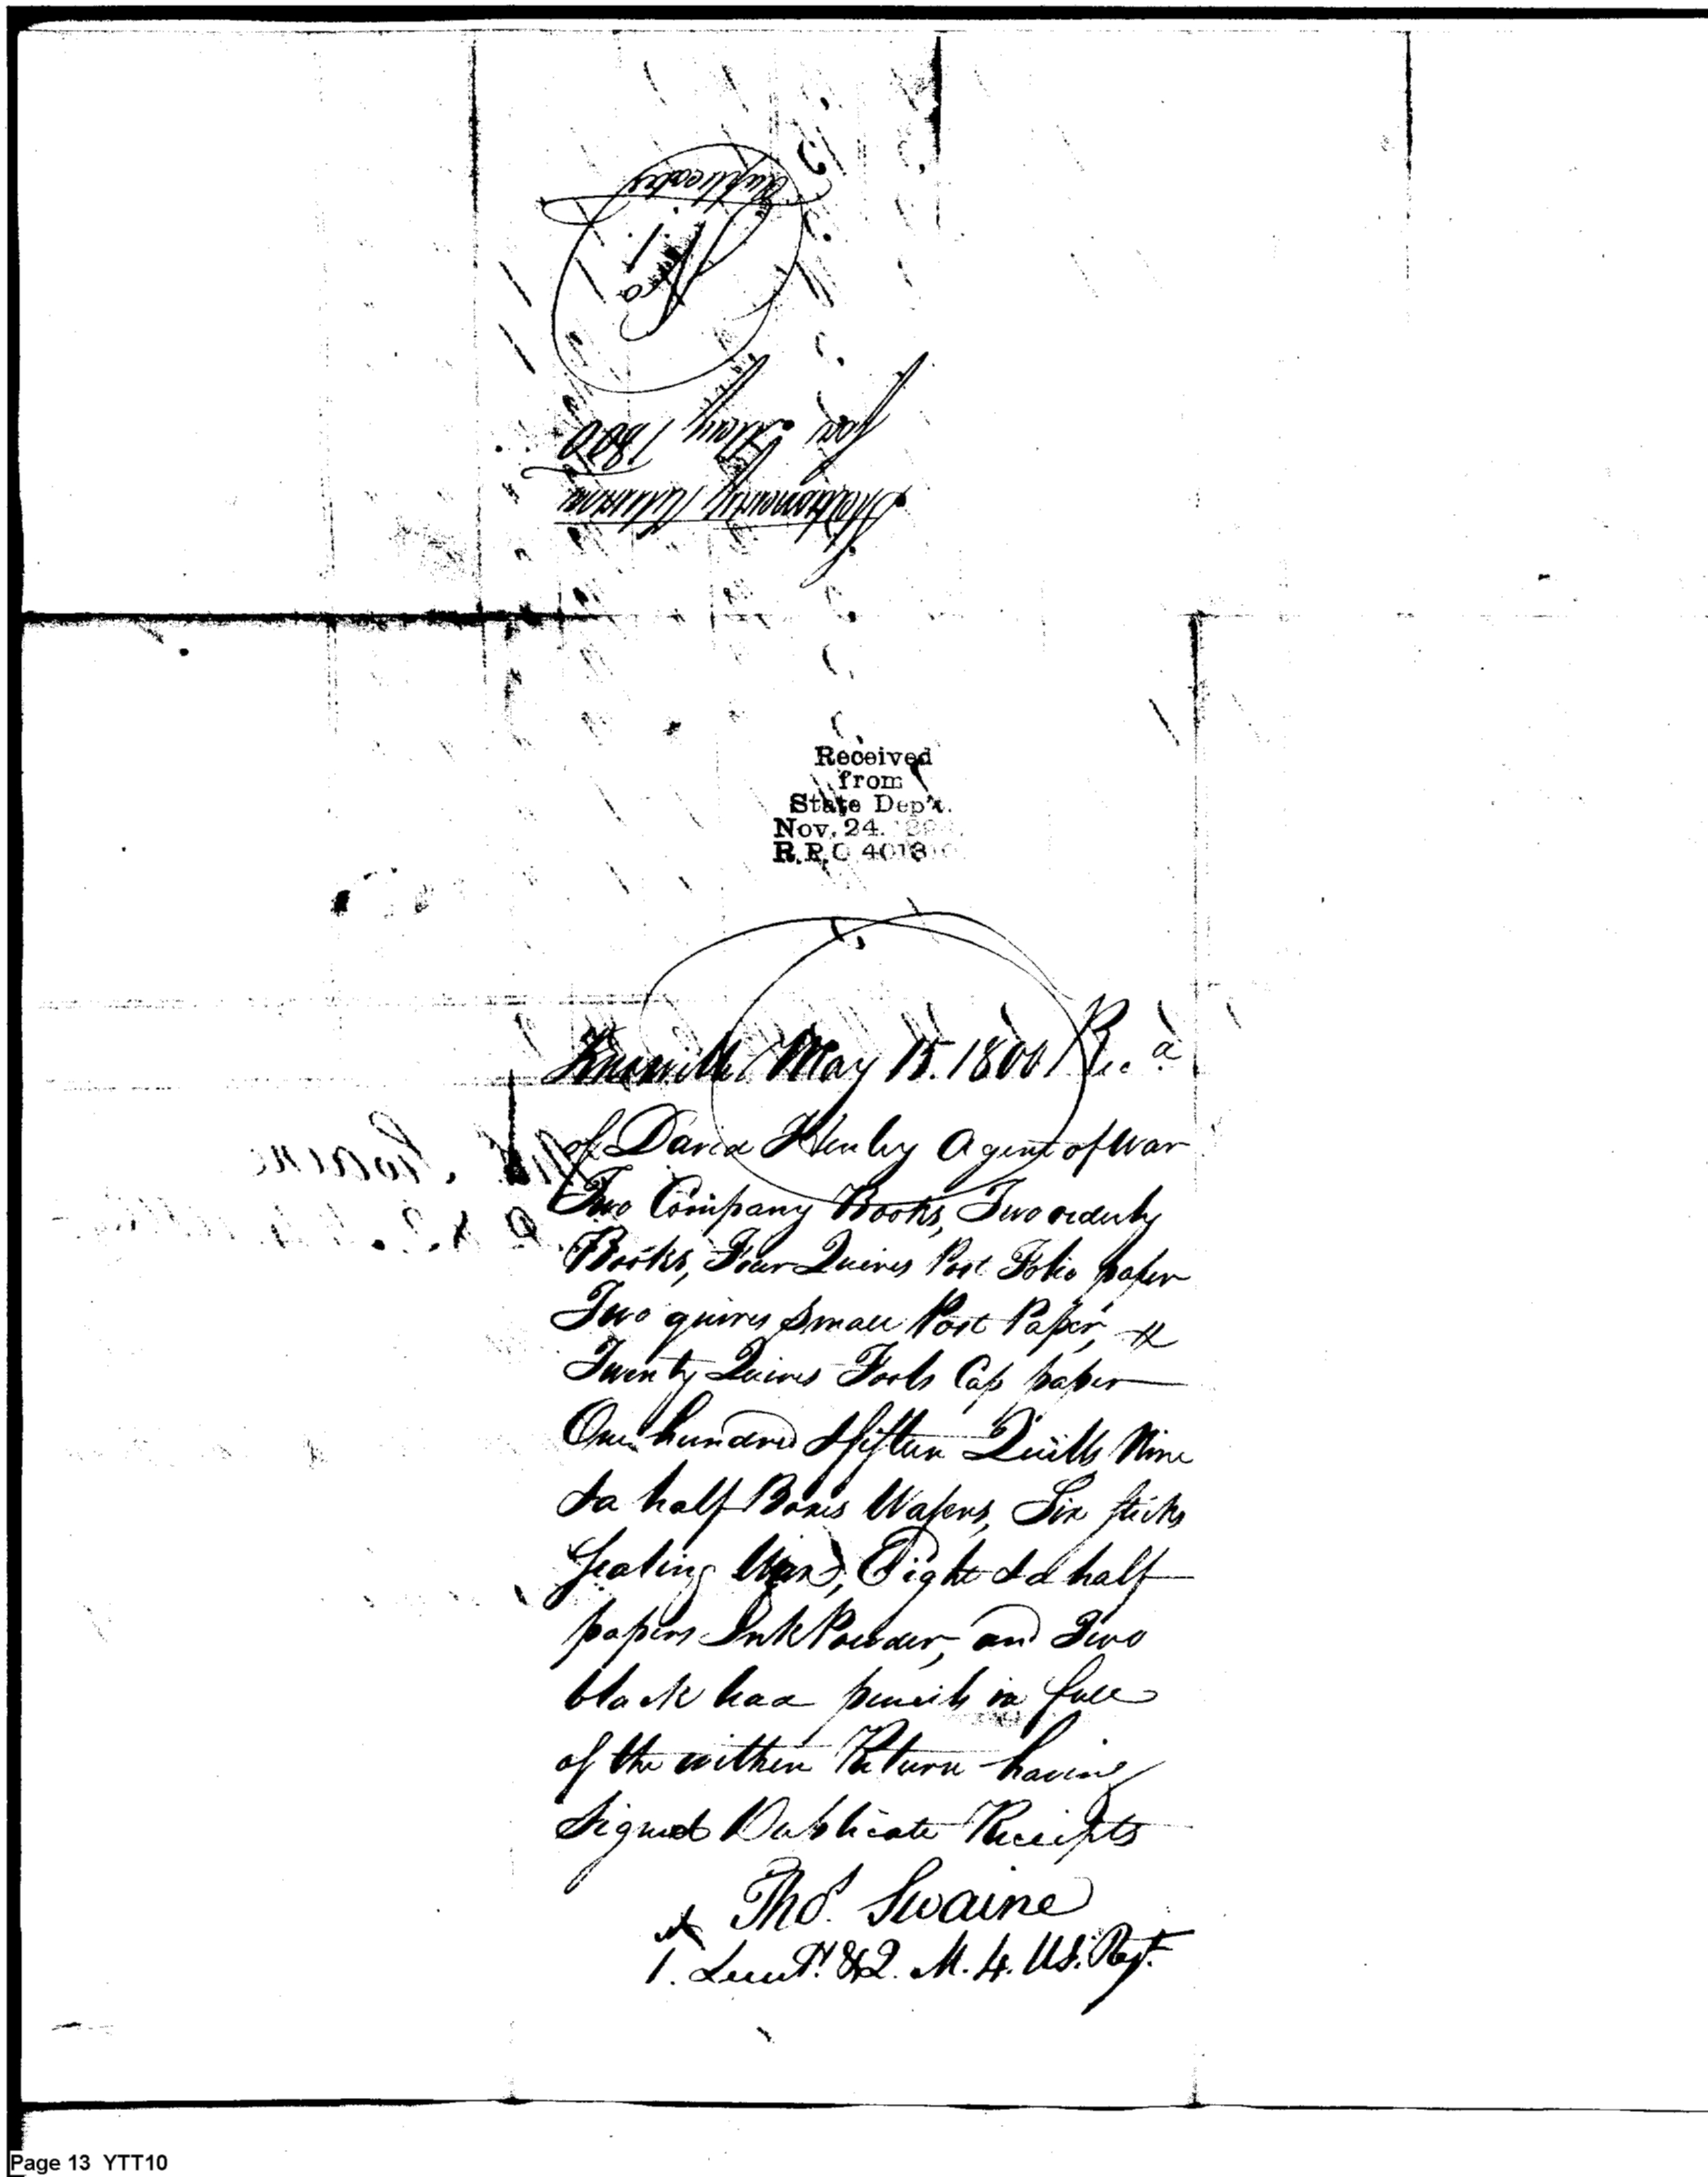 Duplicates
No 1.
Stationary Returns
for May 1800
Received
from
State Dep't.
Nov. 24.
R.R.C 4018
Knoxville May 15. 1800 Rec.d
of David Henley Agent of War
Two Company Books, Two orderly
Books, Four Quires Post Folio paper
Two quires small Post Paper,
Twenty Quires Fools Cap paper
One hundred & fifteen Quills Nine
& a half Boxes Wafers, Six sticks
Sealing Wax, Eight & a half
papers Ink Powder, and Two
black lead pencils in full
of the within Return having
signed Duplicate Receipts
Thos. Swaine
1. Lieut. & Q. M. 4. US. Regt.
Page 13 YTT10